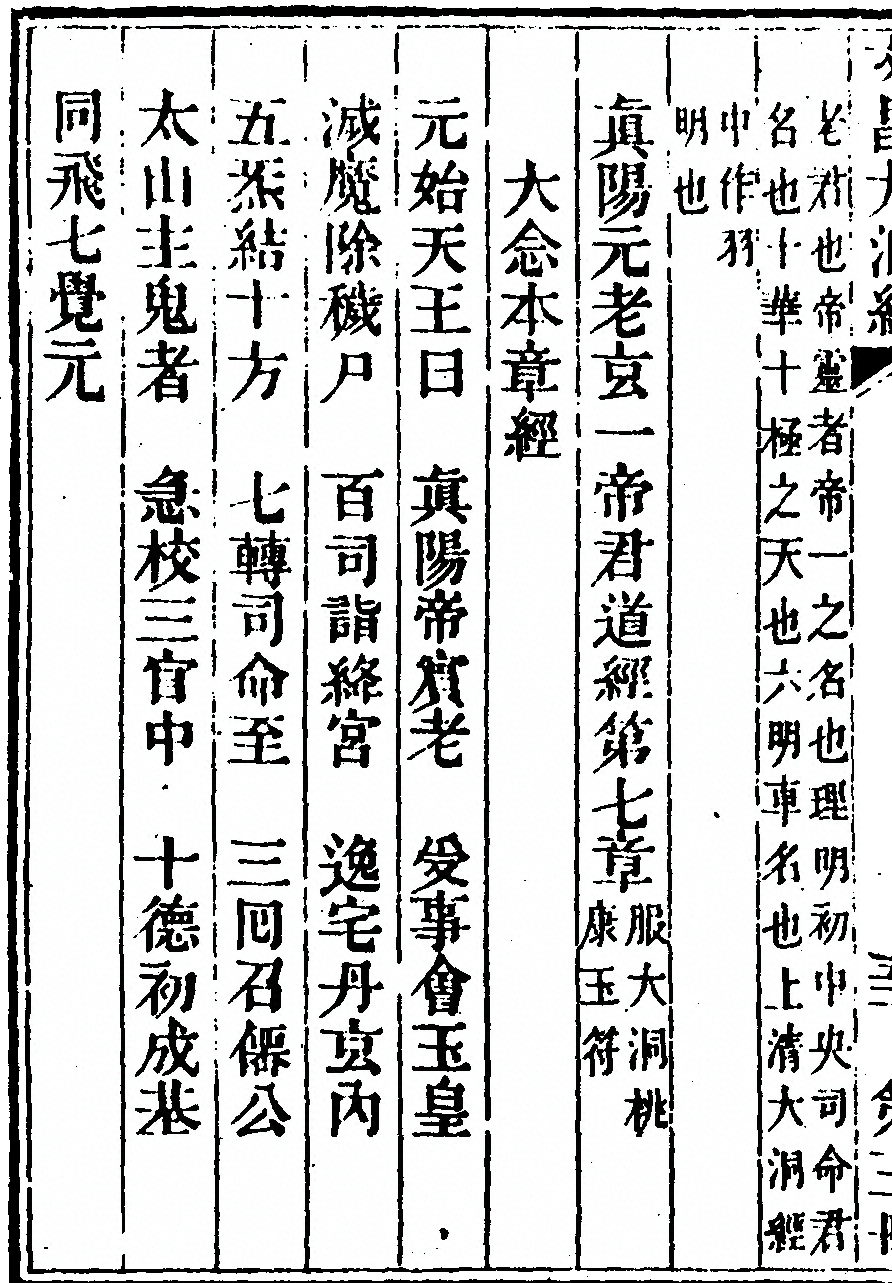 大洞經
老君也帝靈者帝一之名也理明初中央司命君
名也十華十極之天也六明車名也上清大洞經
中作羽
明也
眞陽元老玄一帝君道經第七章 服大洞桃
康玉符
大念本章經
元始天王曰 眞陽帝賔老 受事會玉皇
滅魔除穢尸 百司詣絳宮 逸宅丹玄內
五炁結十方 七轉司命至 三囘召僊公
太山主鬼者 急校三官中 十德初成基
同飛七覺元